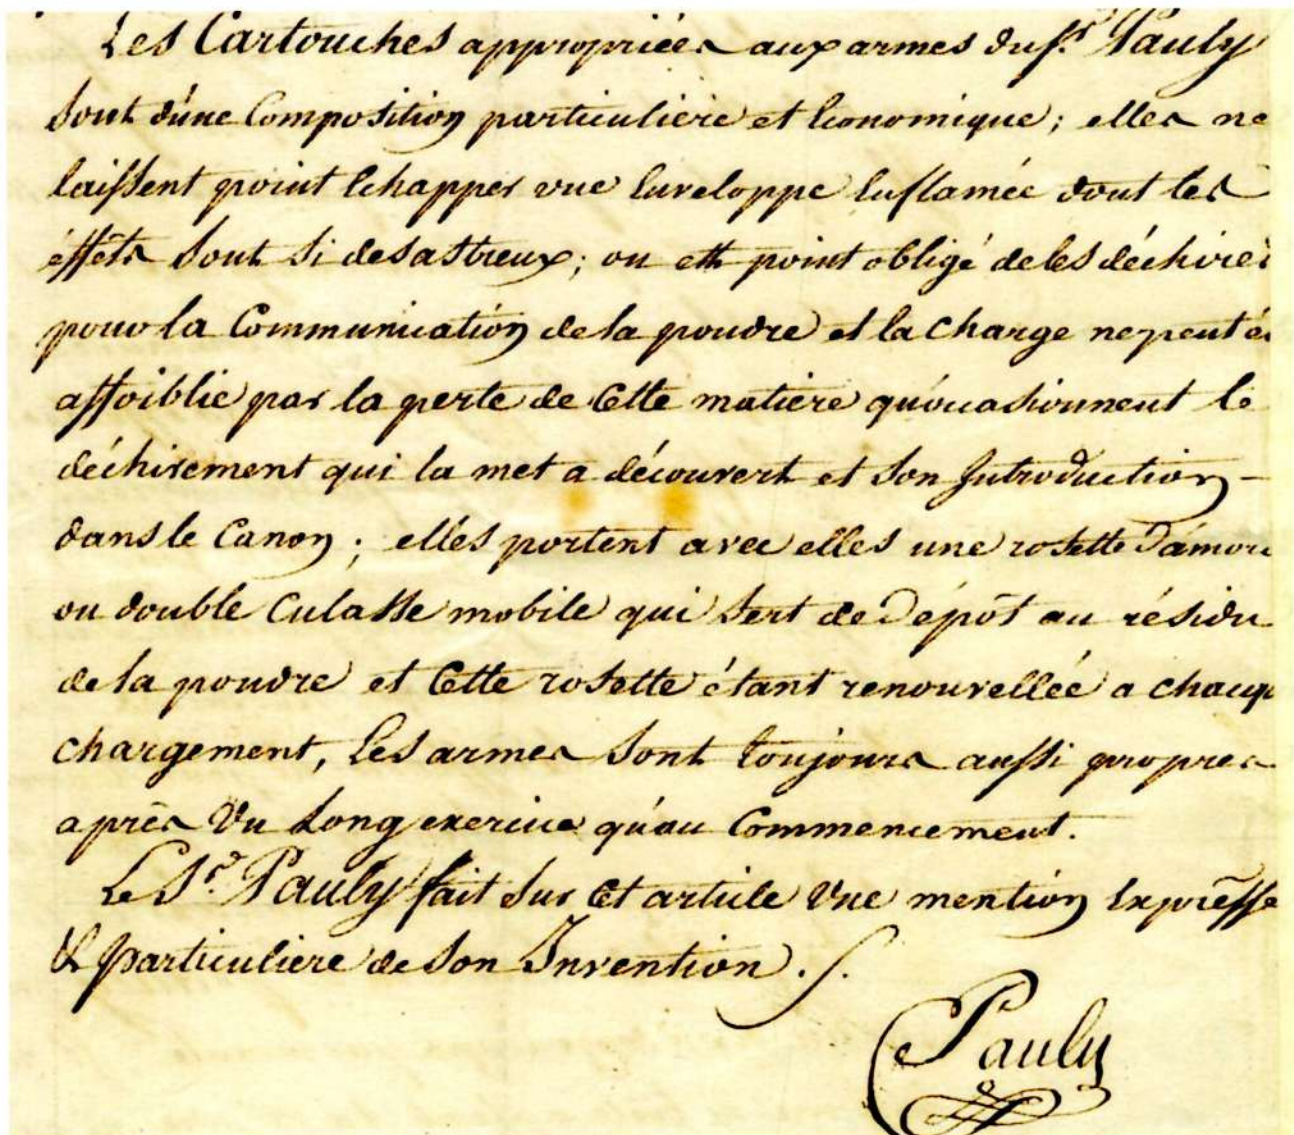 Les Cartouches appropriées aux armes du Sr. Pauly
sont d'une Composition particulière et Economique; elles ne
laissent point Echapper une Enveloppe Enflamée dont les
éffèts sont si desastreux; on est point obligé de les déchirer
pour la Communication de la poudre et la charge ne peut
affoiblie par la perte de Cette matière qu'ocasionnent le
déchirement qui la met a découvert et son Introduction -
dans le Canon; elles portent avec elles une rosette d'amor
ou double Culasse mobile qui sert de Dépôt au résidu
de la poudre et Cette rosette étant renouvellée a chaqu
chargement, Les armes sont toujours aussi propres
après Un Long exercice qu'au Commencement.
Le Sr. Pauly fait sur Cet article Une mention Expresse
& particuliere de son Invention ./.
Pauly